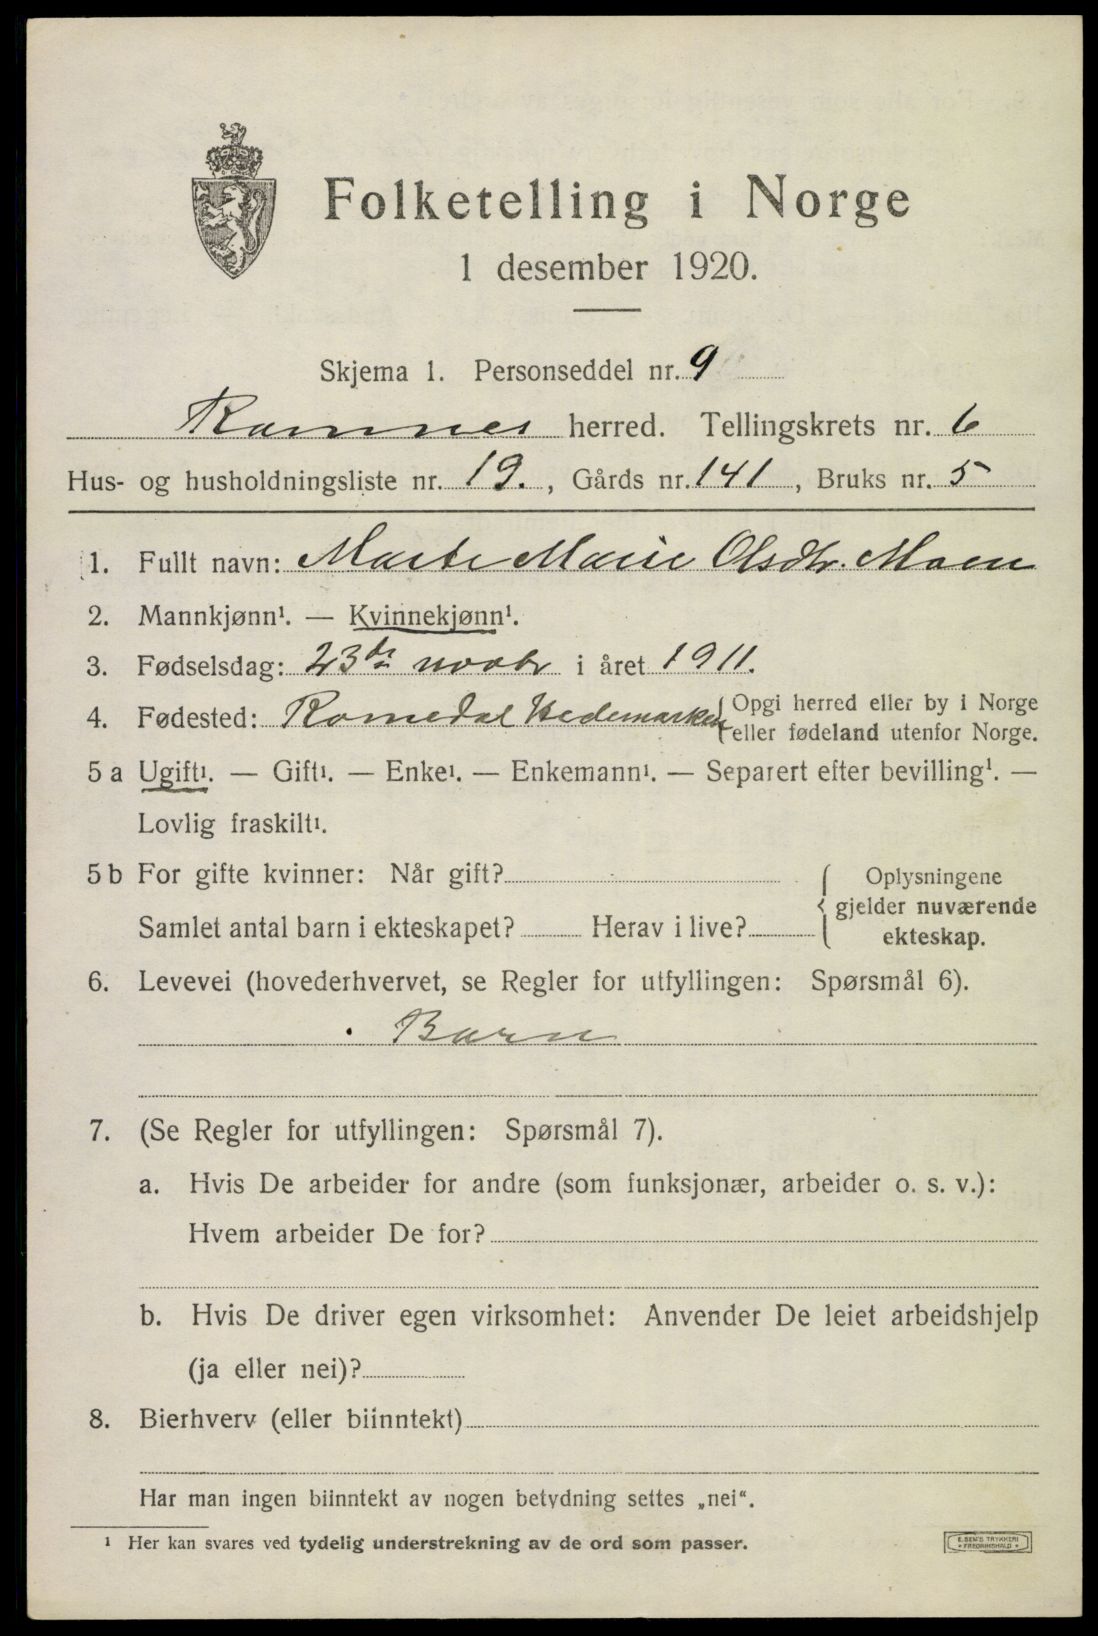 Folketelling i Norge
1 desember 1920.
Skjema 1. Personseddel nr. 9
Ramnes herred. Tellingskrets nr. 6
Hus- og husholdningsliste nr. 19., Gårds nr. 141, Bruks nr. 5
1. Fullt navn: Marte Marie Olsdtr. Moen
2. Mannkjønn¹. — Kvinnekjønn¹.
3. Fødselsdag: 23de novbr i året 1911.
4. Fødested: Romedal Hedemarken { Opgi herred eller by i Norge
eller fødeland utenfor Norge.
5 a Ugift¹. — Gift¹. — Enke¹. — Enkemann¹. — Separert efter bevilling¹. —
Lovlig fraskilt¹.
5 b For gifte kvinner: Når gift? { Oplysningene
gjelder nuværende
Samlet antal barn i ekteskapet? Herav i live?
ekteskap.
6. Levevei (hovederhvervet, se Regler for utfyllingen: Spørsmål 6).
Barn
7. (Se Regler for utfyllingen: Spørsmål 7).
a. Hvis De arbeider for andre (som funksjonær, arbeider o. s. v.):
Hvem arbeider De for?
b. Hvis De driver egen virksomhet: Anvender De leiet arbeidshjelp
(ja eller nei)?
8. Bierhverv (eller biinntekt)
Har man ingen biinntekt av nogen betydning settes „nei“.
¹ Her kan svares ved tydelig understrekning av de ord som passer.
E. SEM'S TRYKKERI
• FREDRIKSHALD •